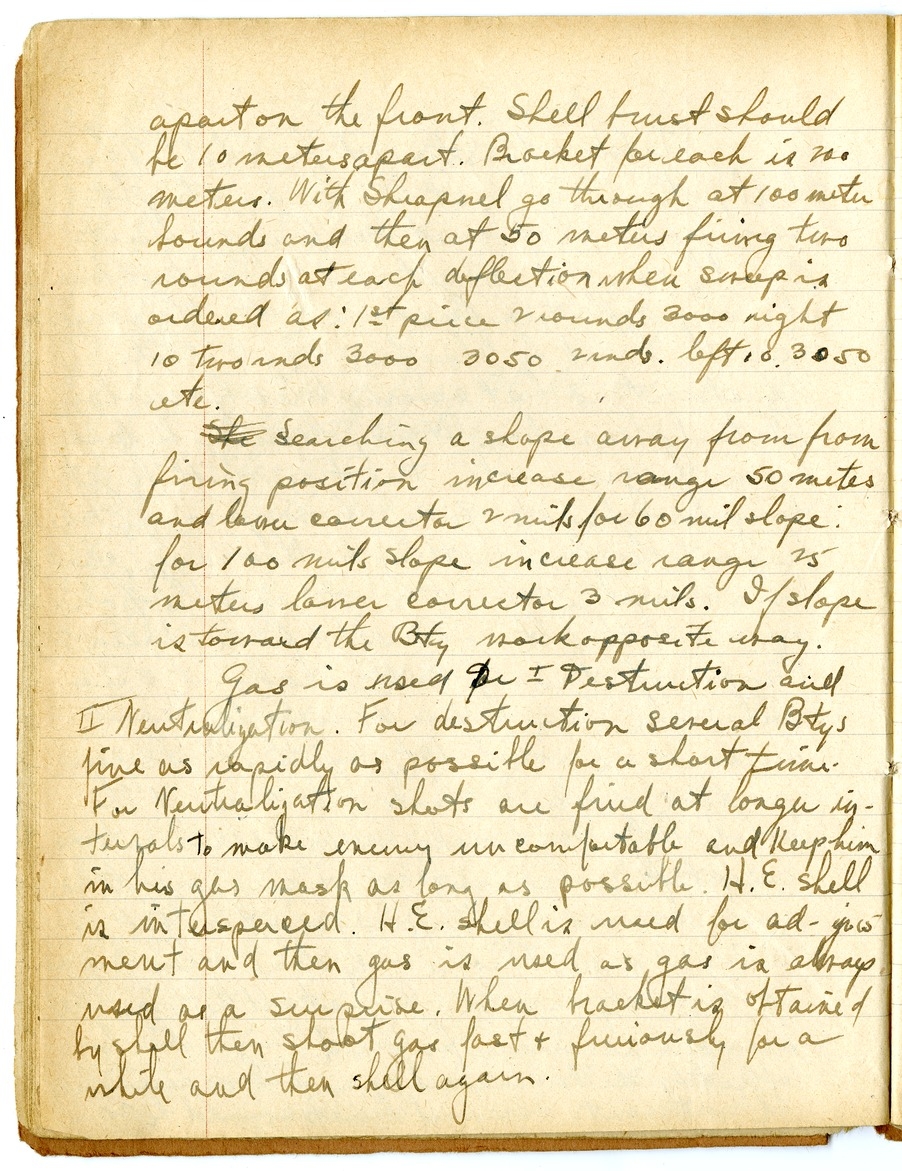 apart on the front. Shell burst should
be 10 meters apart. Bracket for each is 200
meters. With Shrapnel go through at 100 meter
bounds and then at 50 meters firing two
rounds at each deflection when sweep is
ordered as: 1st piece 2 rounds 3000 right
10 two rnds 3000 3050 2 rnds. left 10. 3050
etc.
She Searching a slope away from from
firing position increase range 50 metes
and lower corrector 2 mils for 60 mil slope:
for 100 mils slope increase range 25
meters lower corrector 3 mils. If slope
is toward the Bty work opposite way.
Gas is used for I Destruction and
II Neutralization. For destruction several Btys
fire as rapidly as possible for a short time.
For Neutralization shots are fired at longer in-
tervals to make enemy uncomfortable and Keep him
in his gas mask as long as possible. H.E. shell
is interspersed. H.E. shell is used for ad-
ment and then gas is used as gas is always
used as a surprise. When bracket is obtained
by shell then shoot gas fast + furiously for a
while and then shell again.